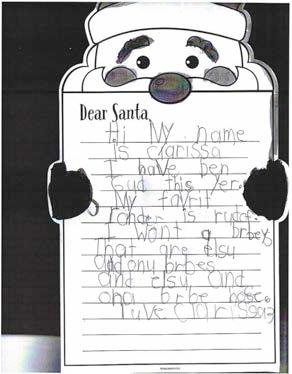 Dear Santa
Hi My name
is clarissa
I have ben
Gud this yer.
My favrit
is rudd.
I want 9 brbeys
That are elsu
and onu brbes
and elsu, and
ona brbe hose.
Luve Clarissa